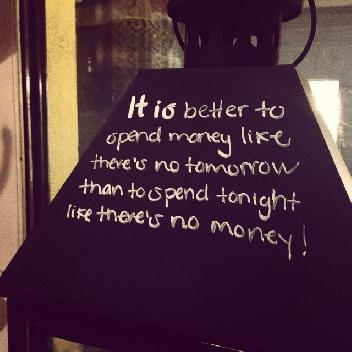 It is better to
spend money like
there's no tomorrow
than to spend tonight
like there's no money!